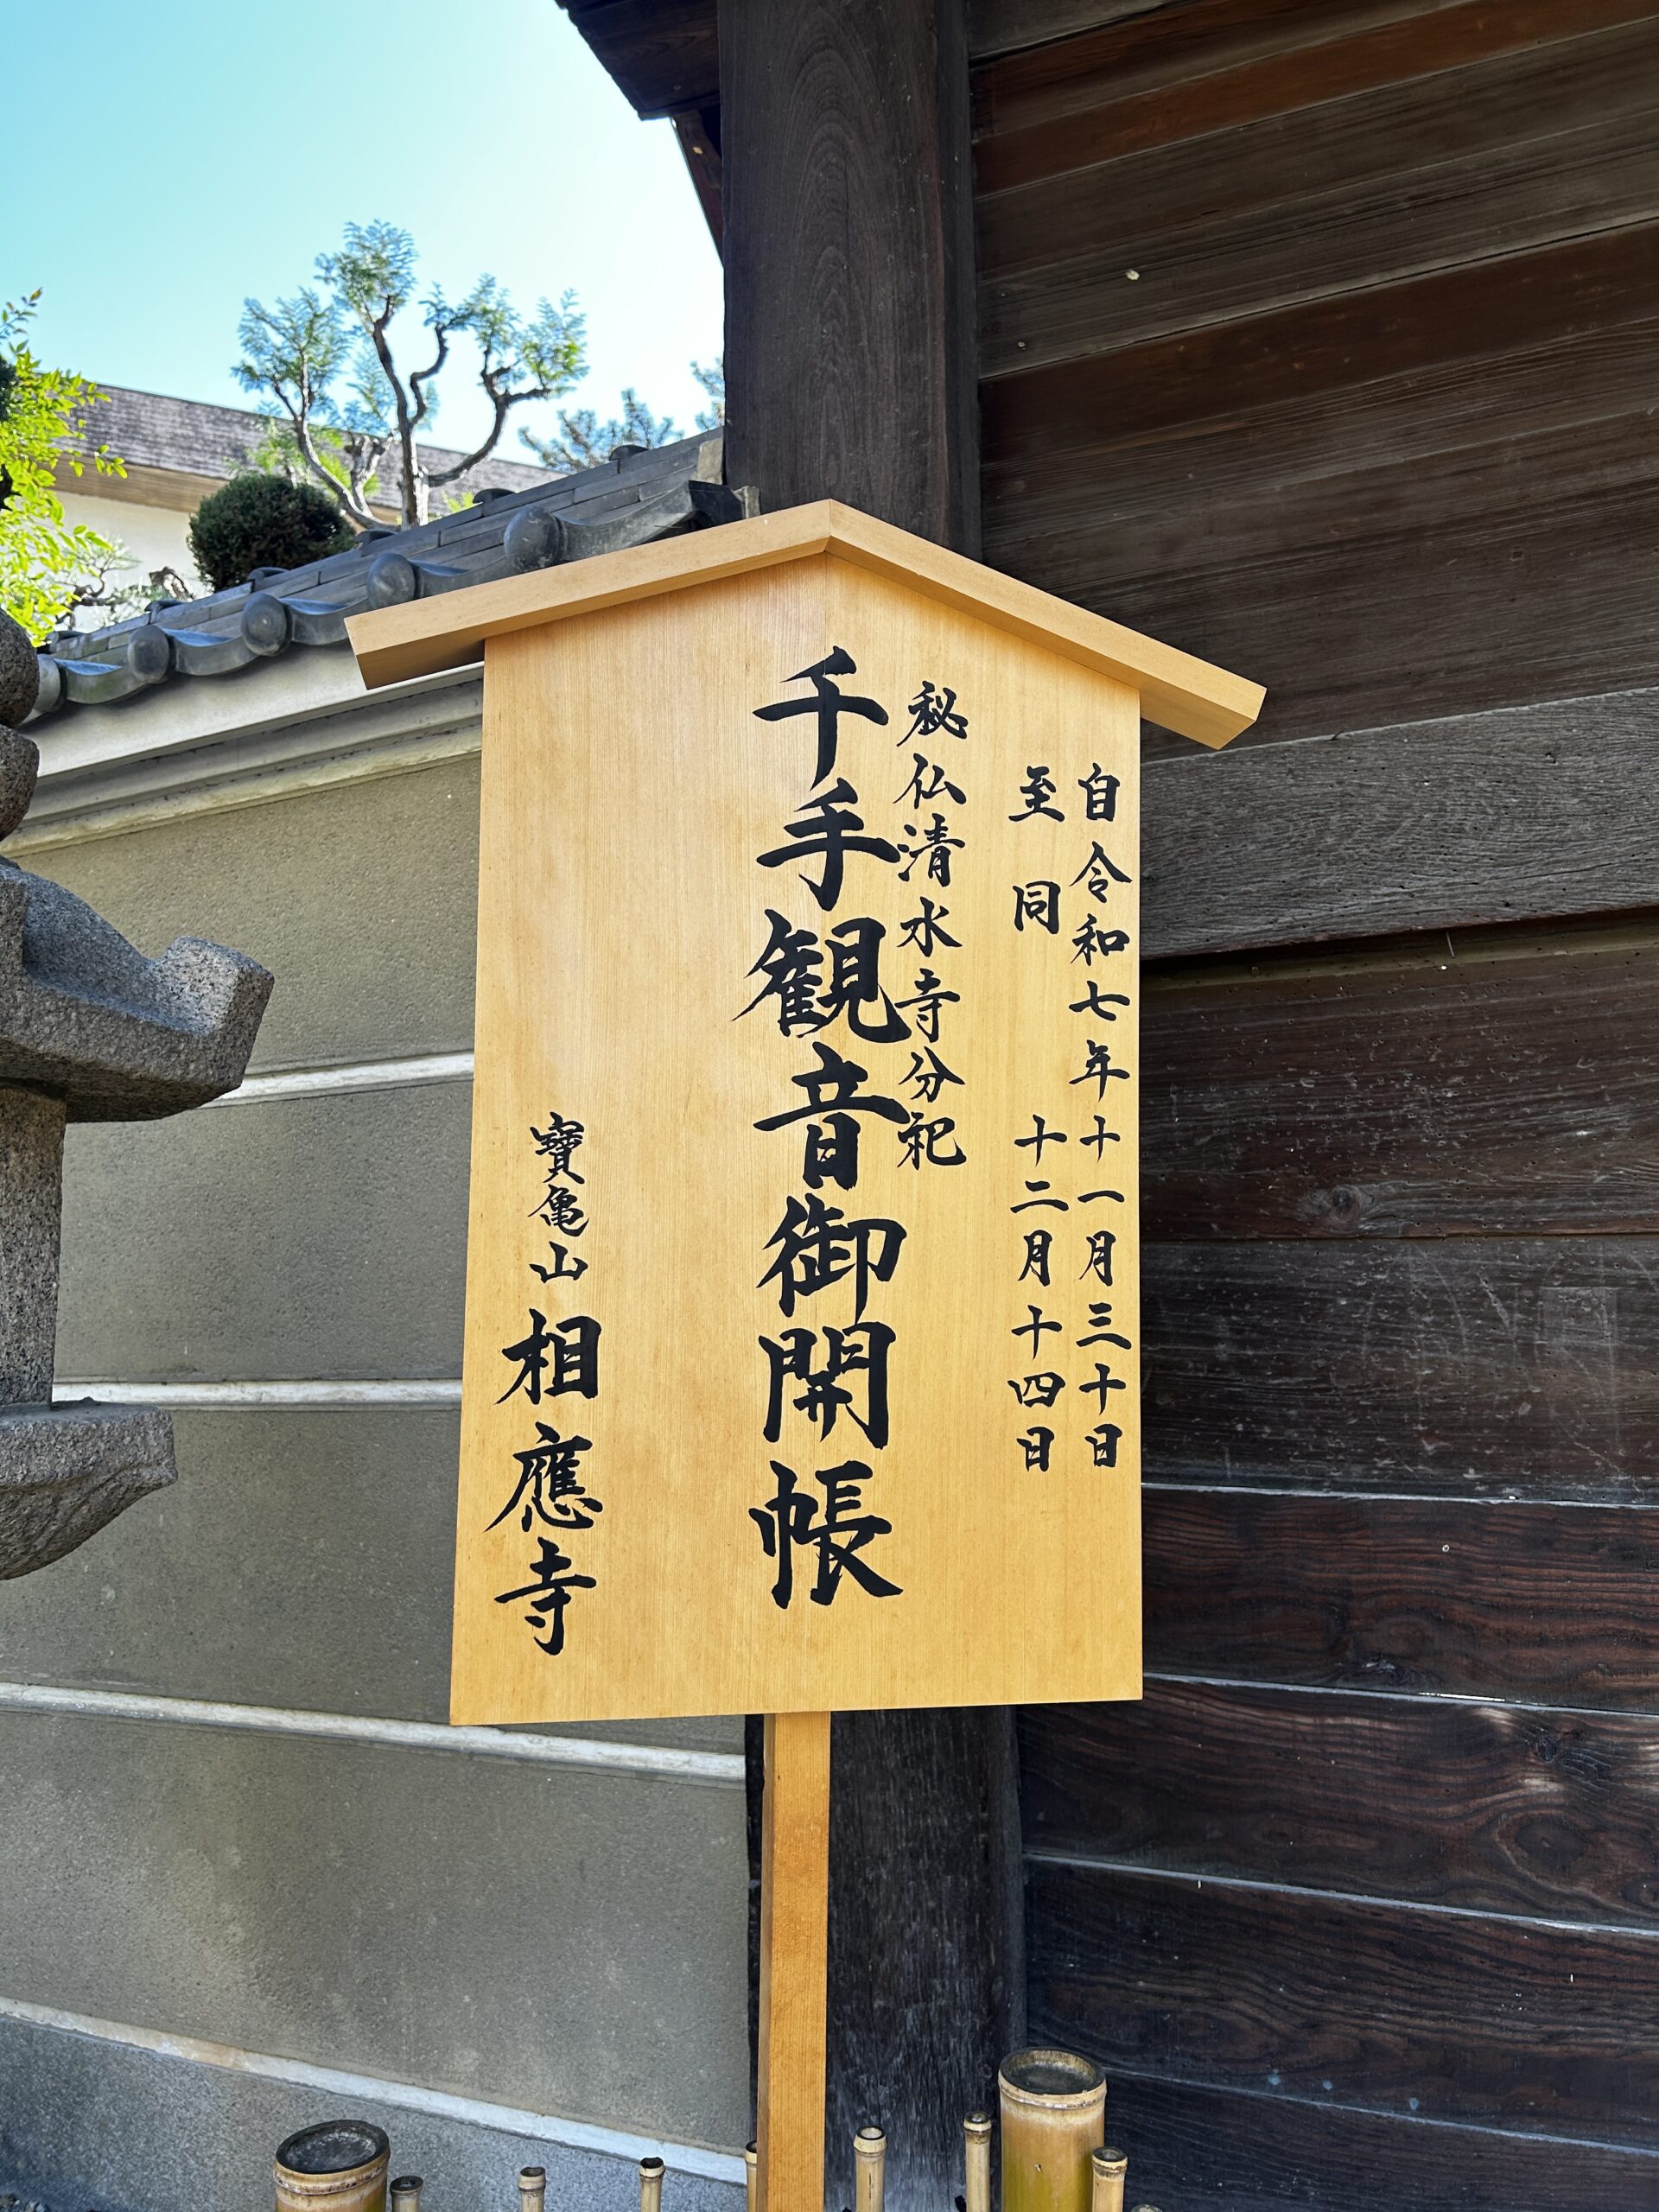 自令和七年十一月三十日
至同十二月十四日
秘仏清水寺分祀
千手観音御開帳
寶亀山相應寺